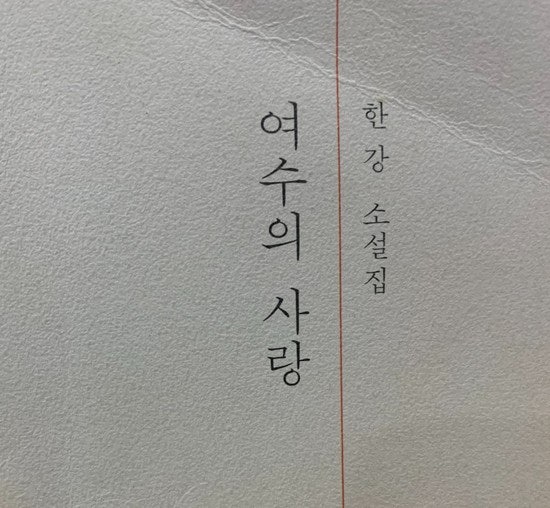 한강 소설집
여수의 사랑